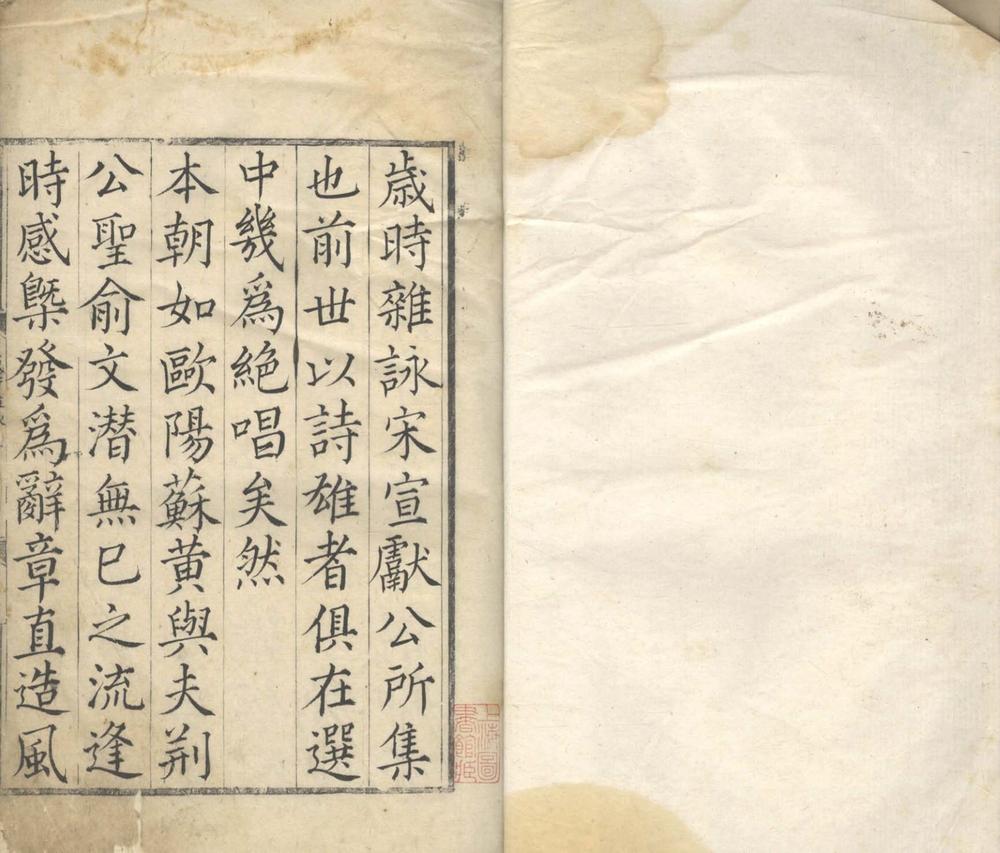 歲時雜詠宋宣獻公所集
也前世以詩雄者俱在選
中幾爲絕唱矣然
本朝如歐陽蘇黃與夫荆
公聖俞文潛無已之流逢
時感槩發爲辭章直造風
上海圖
書館藏